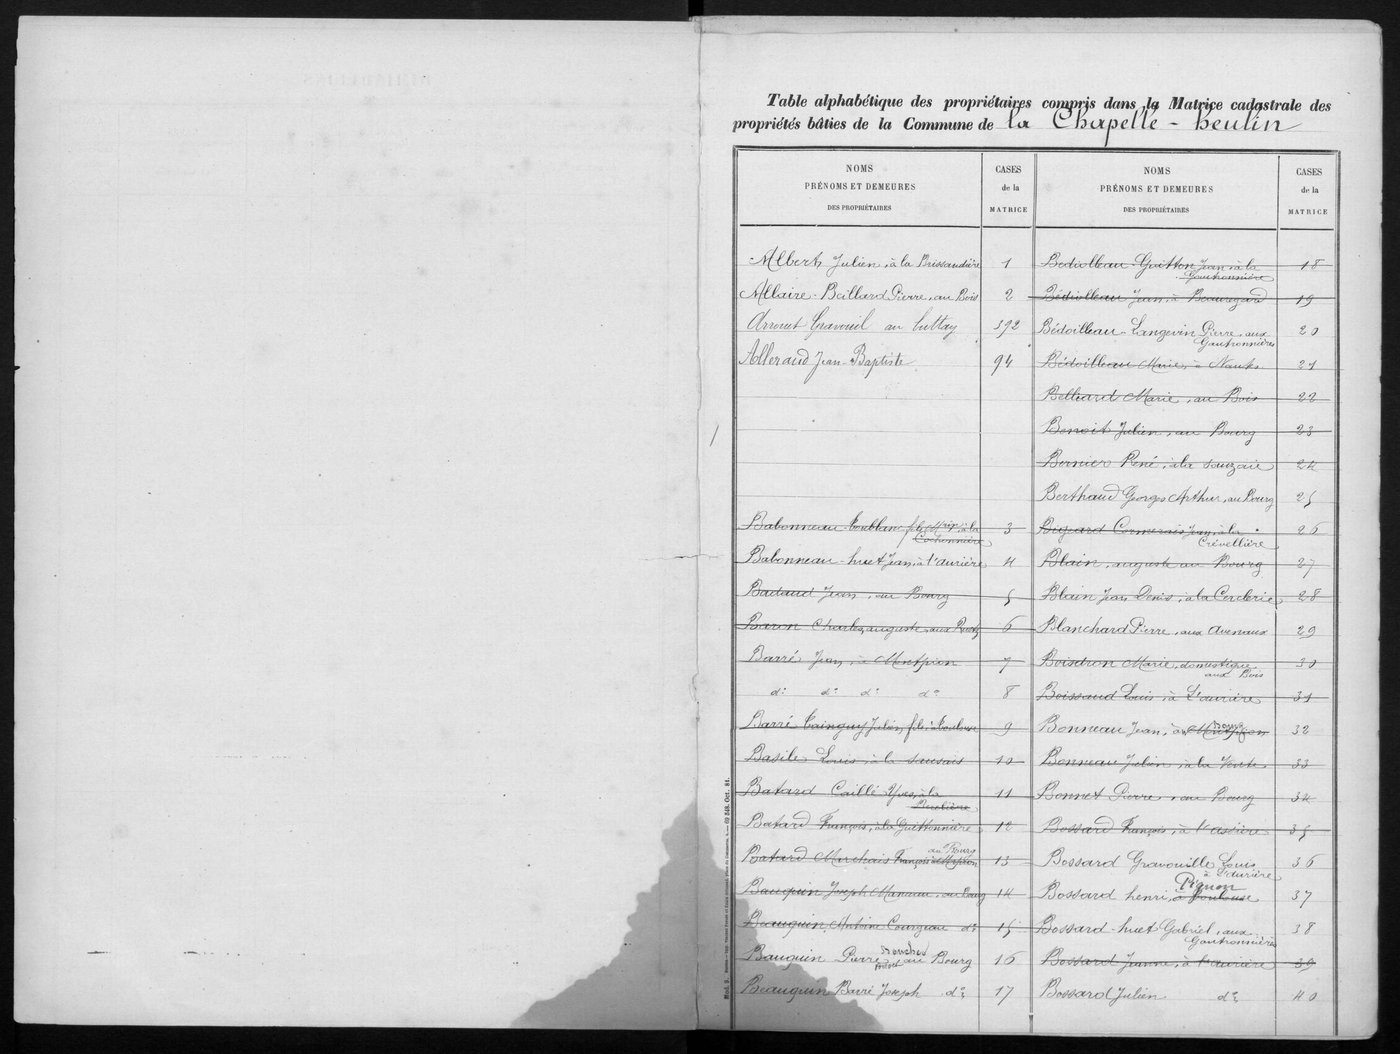 Table alphabétique des propriétaires compris dans la Matrice cadastrale des
propriétés bâties de la Commune de la Chapelle-heulin
NOMS
PRÉNOMS ET DEMEURES
DES PROPRIÉTAIRES
CASES
de la
MATRICE
Albert Julien, à la Brissaudière 1
Allaire-Baillard Pierre, au Bois 2
Gravouil au 392
Alleraud Jean-Baptiste 94
Babonneau 3
Babonneau-huet Jean, à l'aurière 4
Badaud Jean, au Bourg 5
Baron Charles, auguste, aux 6
Barré Jean, à Montpion 7
do do do do 8
Barré Julien fils, à 9
Basile Louis, à la Sausais 10
Batard Caillé Yves, à la 11
Batard François, à la Guittonnière 12
au Bourg
Batard Marchais François 13
Bauquin Joseph, au Bourg 14
Beauquin Antoine Courgeau do 15
Bauquin Pierre au Bourg 16
Beauquin Barré Joseph do 17
NOMS
PRÉNOMS ET DEMEURES
DES PROPRIÉTAIRES
CASES
de la
MATRICE
Bédiolleau-Guitton Jean, à la 18
Gautronnière
Bédiolleau Jean, à Beauregard 19
Bédoilleau-Langevin Pierre, aux 20
Gautronnières
Bédoilleau Marie, à Nantes 21
Belliard Marie, au Bois 22
Benoit Julien, au Bourg 23
Bernier René, à la Sauzaie 24
Berthaud Georges Arthur, au Bourg 25
Cormerais Jean, à la 26
Crévellière
Blain, auguste au Bourg 27
Blain Jean Denis, à la Cerclerie 28
Blanchard Pierre, aux avenaux 29
Boisdron Marie, domestique 30
aux Bois
Boissaud Louis, à l'aurière 31
Bonneau Jean, à Montpion 32
Bonneau Julien, à la Vente 33
Bonnet Pierre, au Bourg 34
Bossard François, à 35
Bossard Gravouille Louis 36
à l'aurière
Pignon
Bossard henri, à 37
Bossard-huet Gabriel, aux 38
Gautronnières
Bossard Jeanne, à l'aurière 39
Bossard Julien do 40